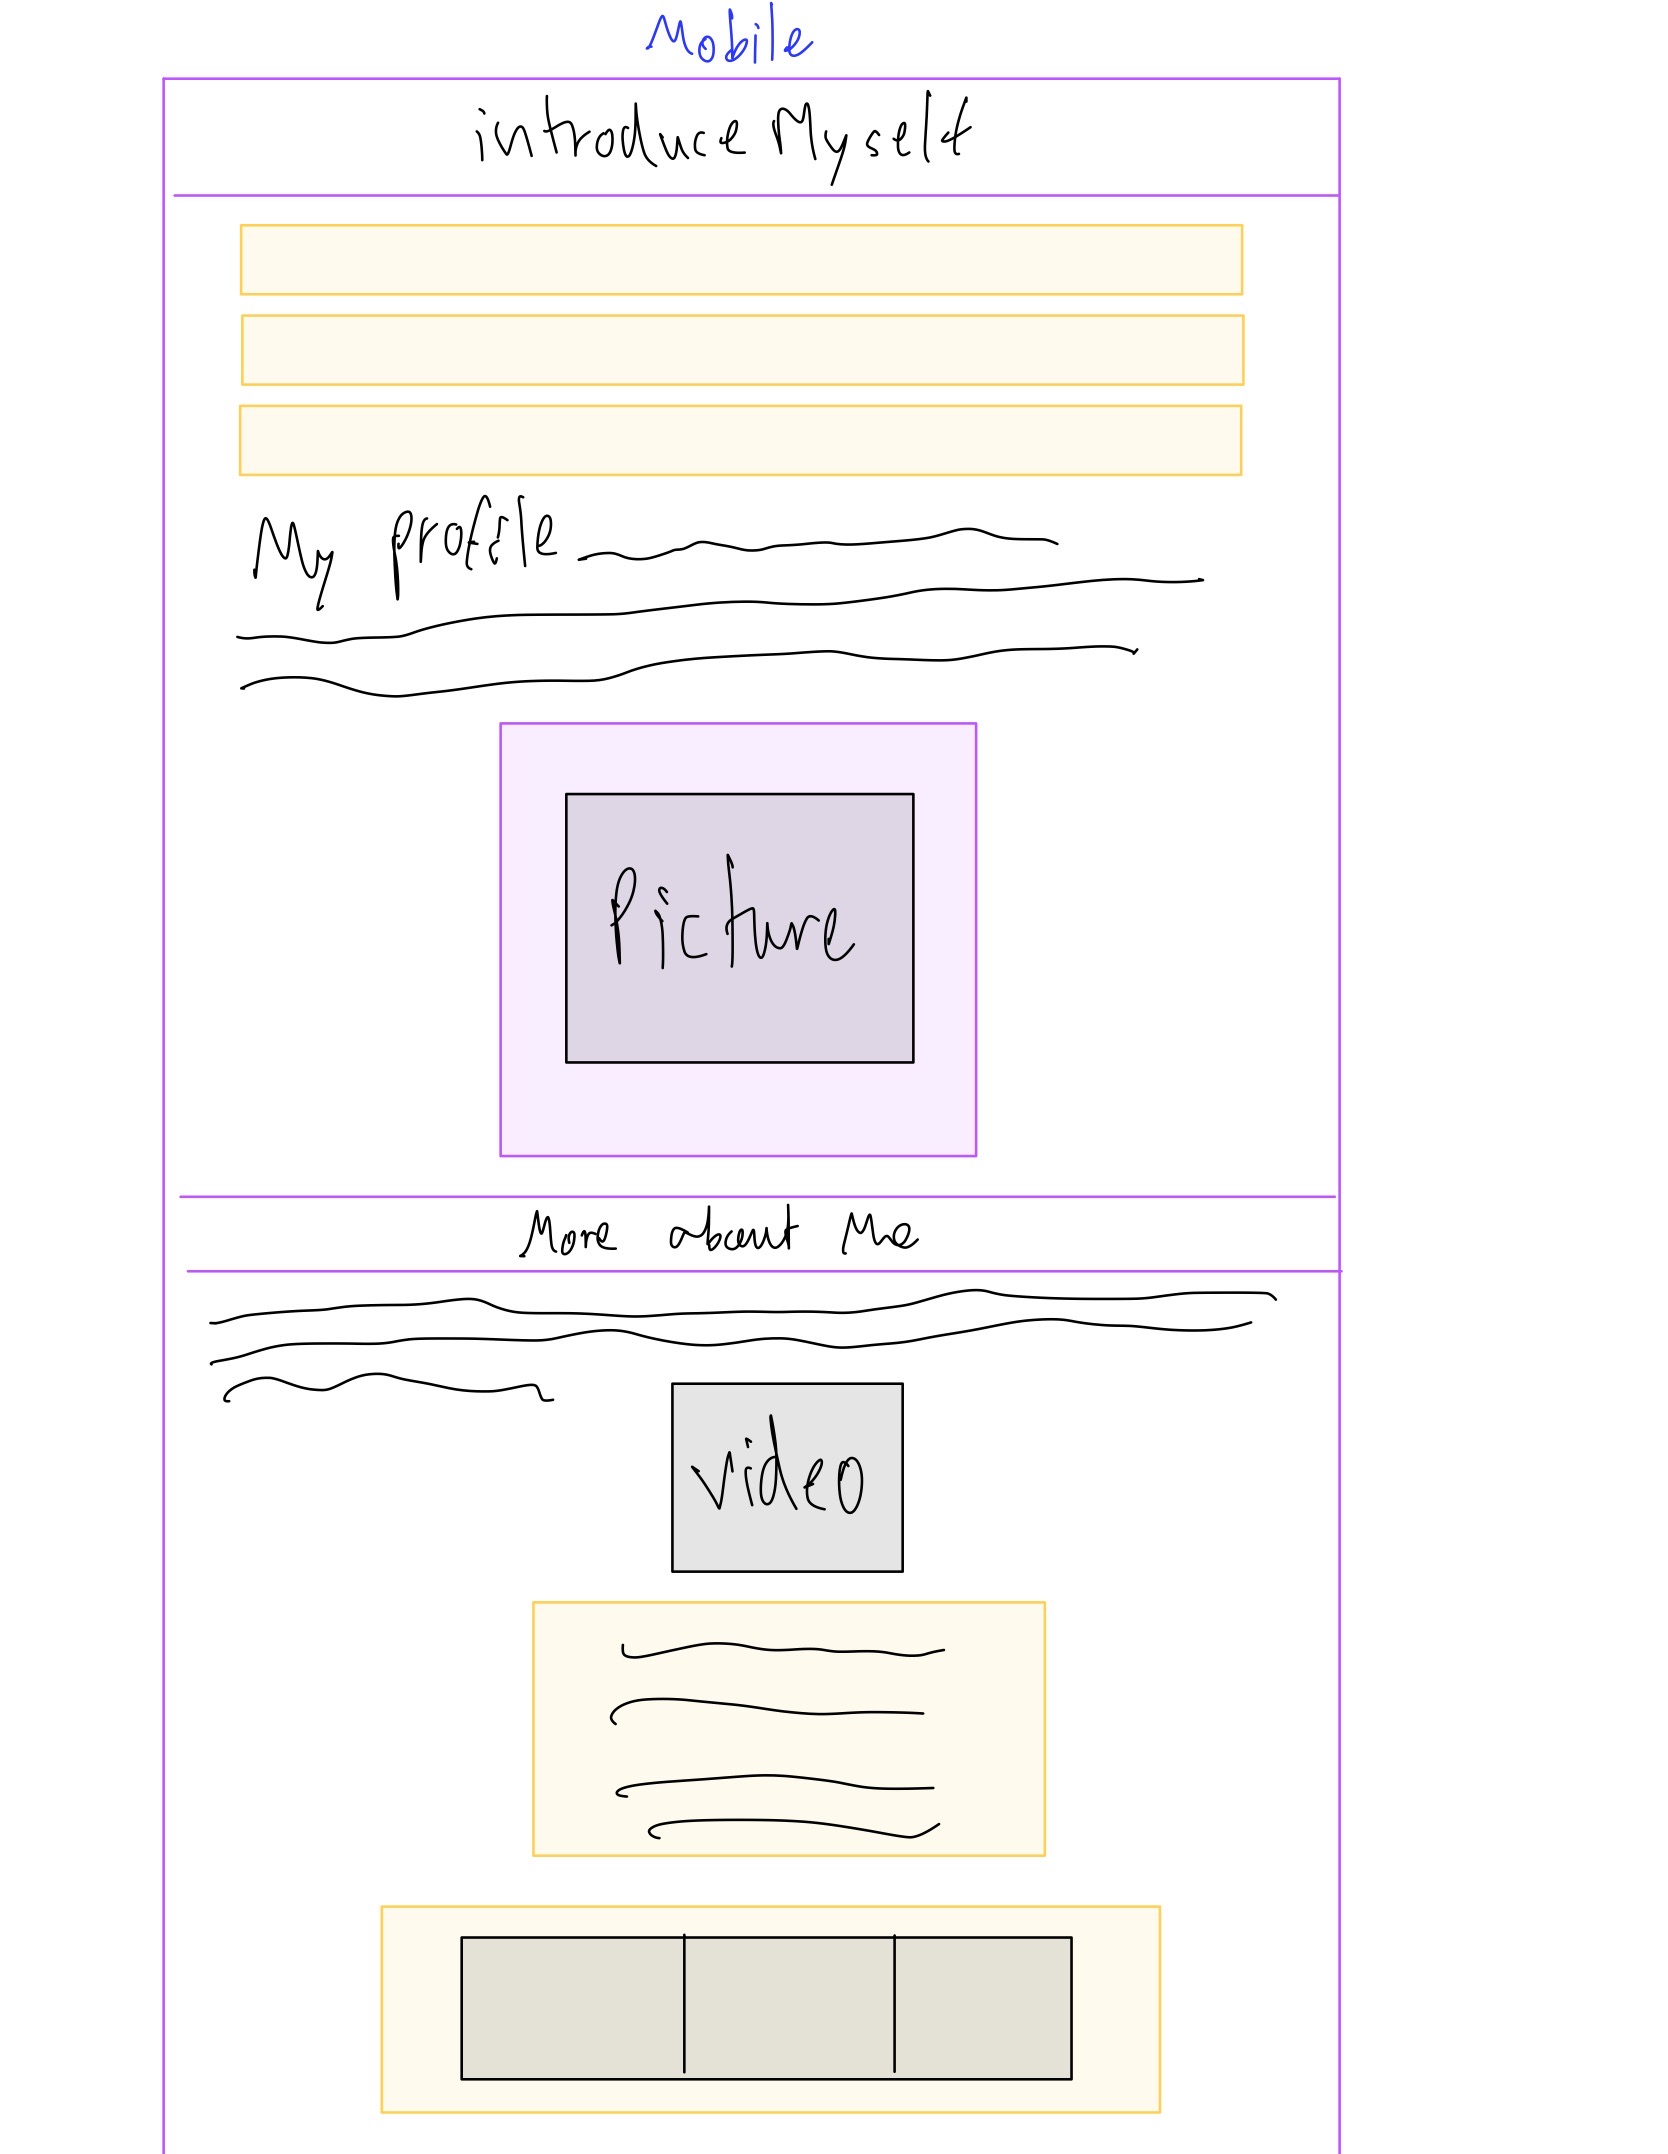 Mobile
introduce Myself
My profile
Picture
More about Me
video